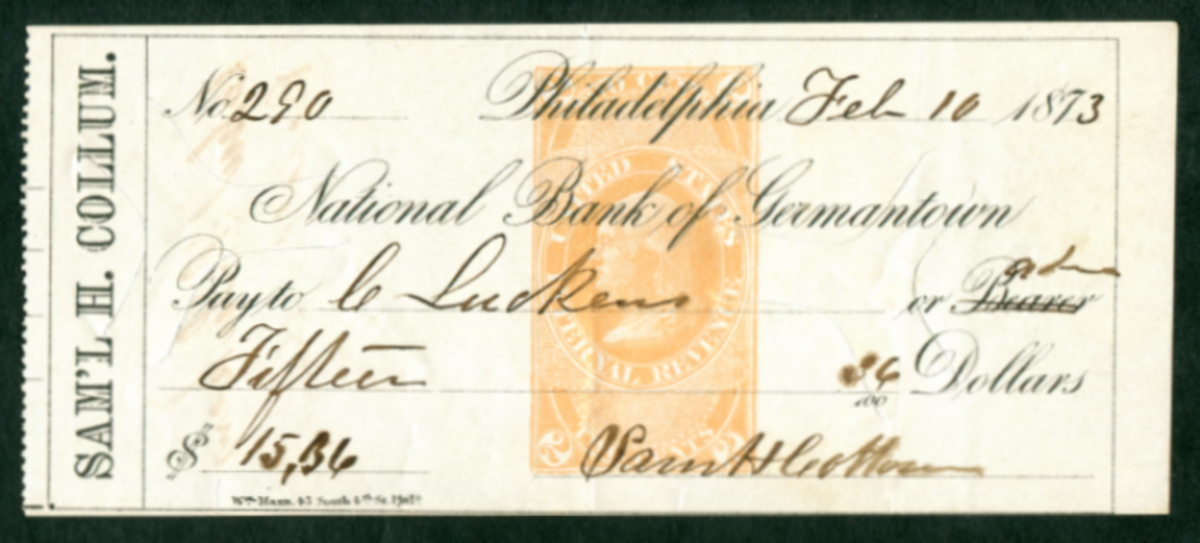 SAM'L H. COLLUM.
No. 290 Philadelphia Feb 10 1873
National Bank of Germantown
Pay to C Luckens or Bearer order
Fifteen 36/100 Dollars
$ 15,36 Sam H Collum
Wm Mann, 43 South 4th St. Phila
UNITED STATES
INTERNAL REVENUE
2 CENTS 2